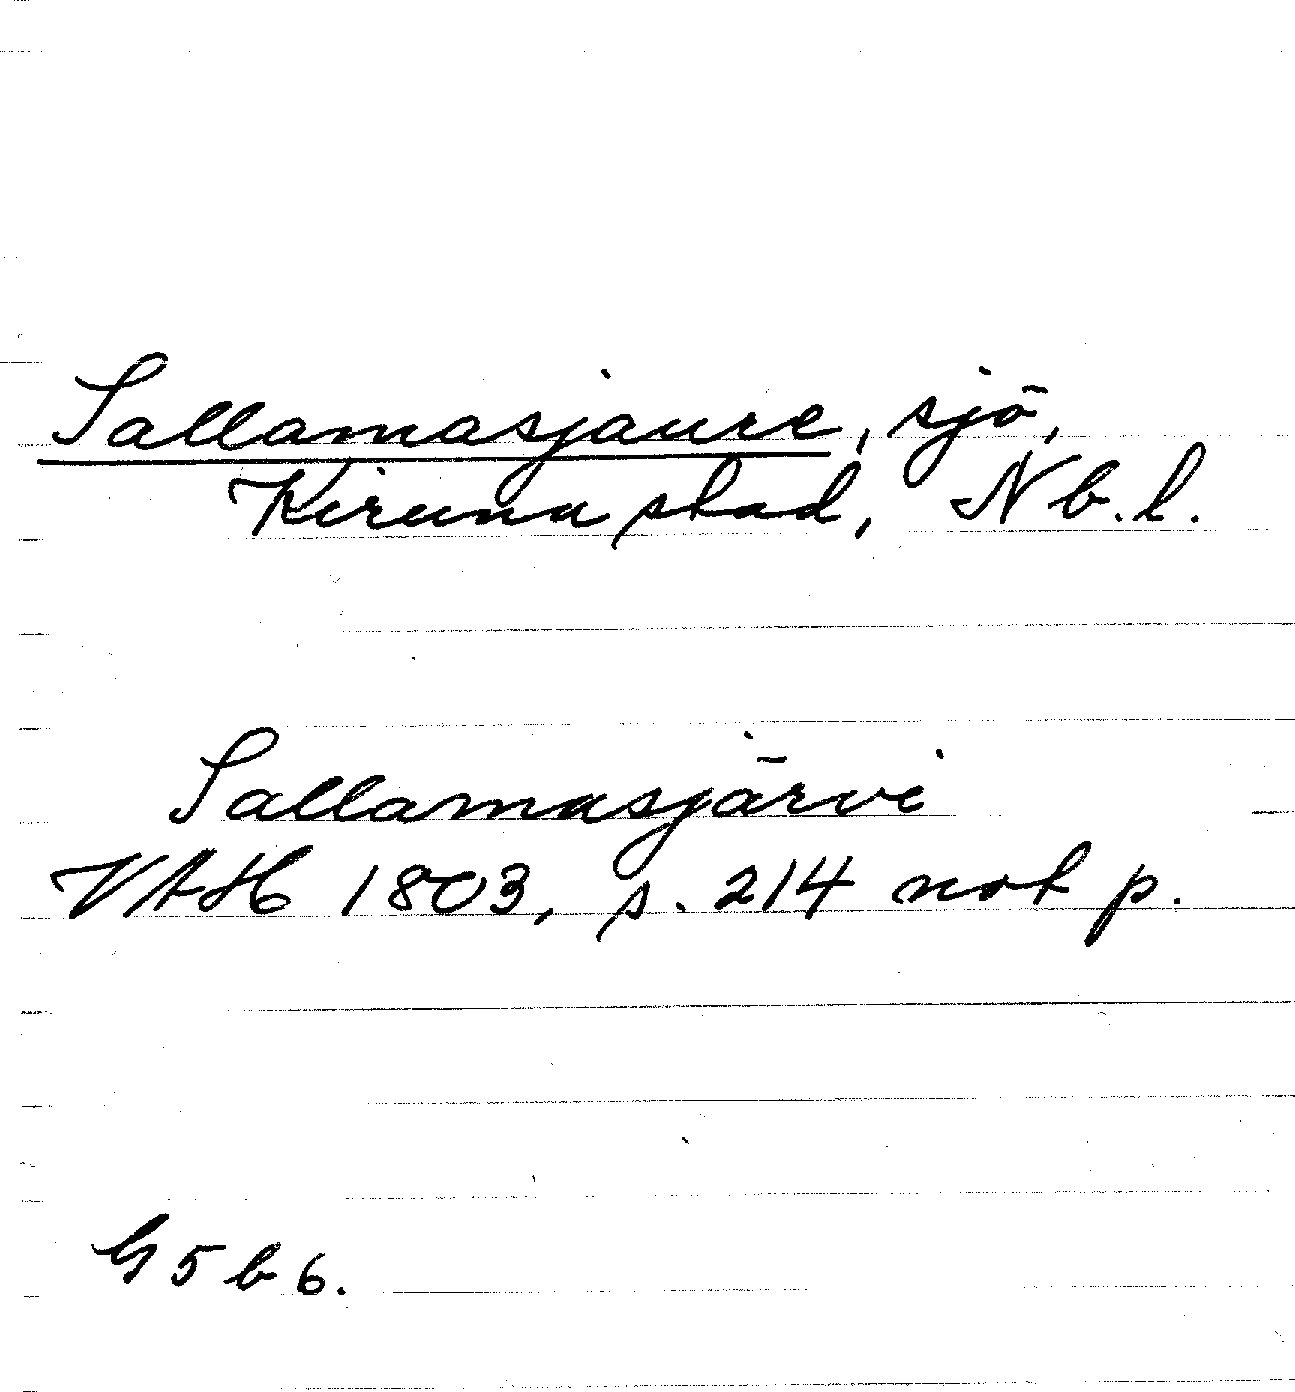 Sallamasjaure, sjö,
Kiruna stad, Nb. l.
Sallamasjärvi
VAH 1803, s. 214 not p.
G 5 b 6.